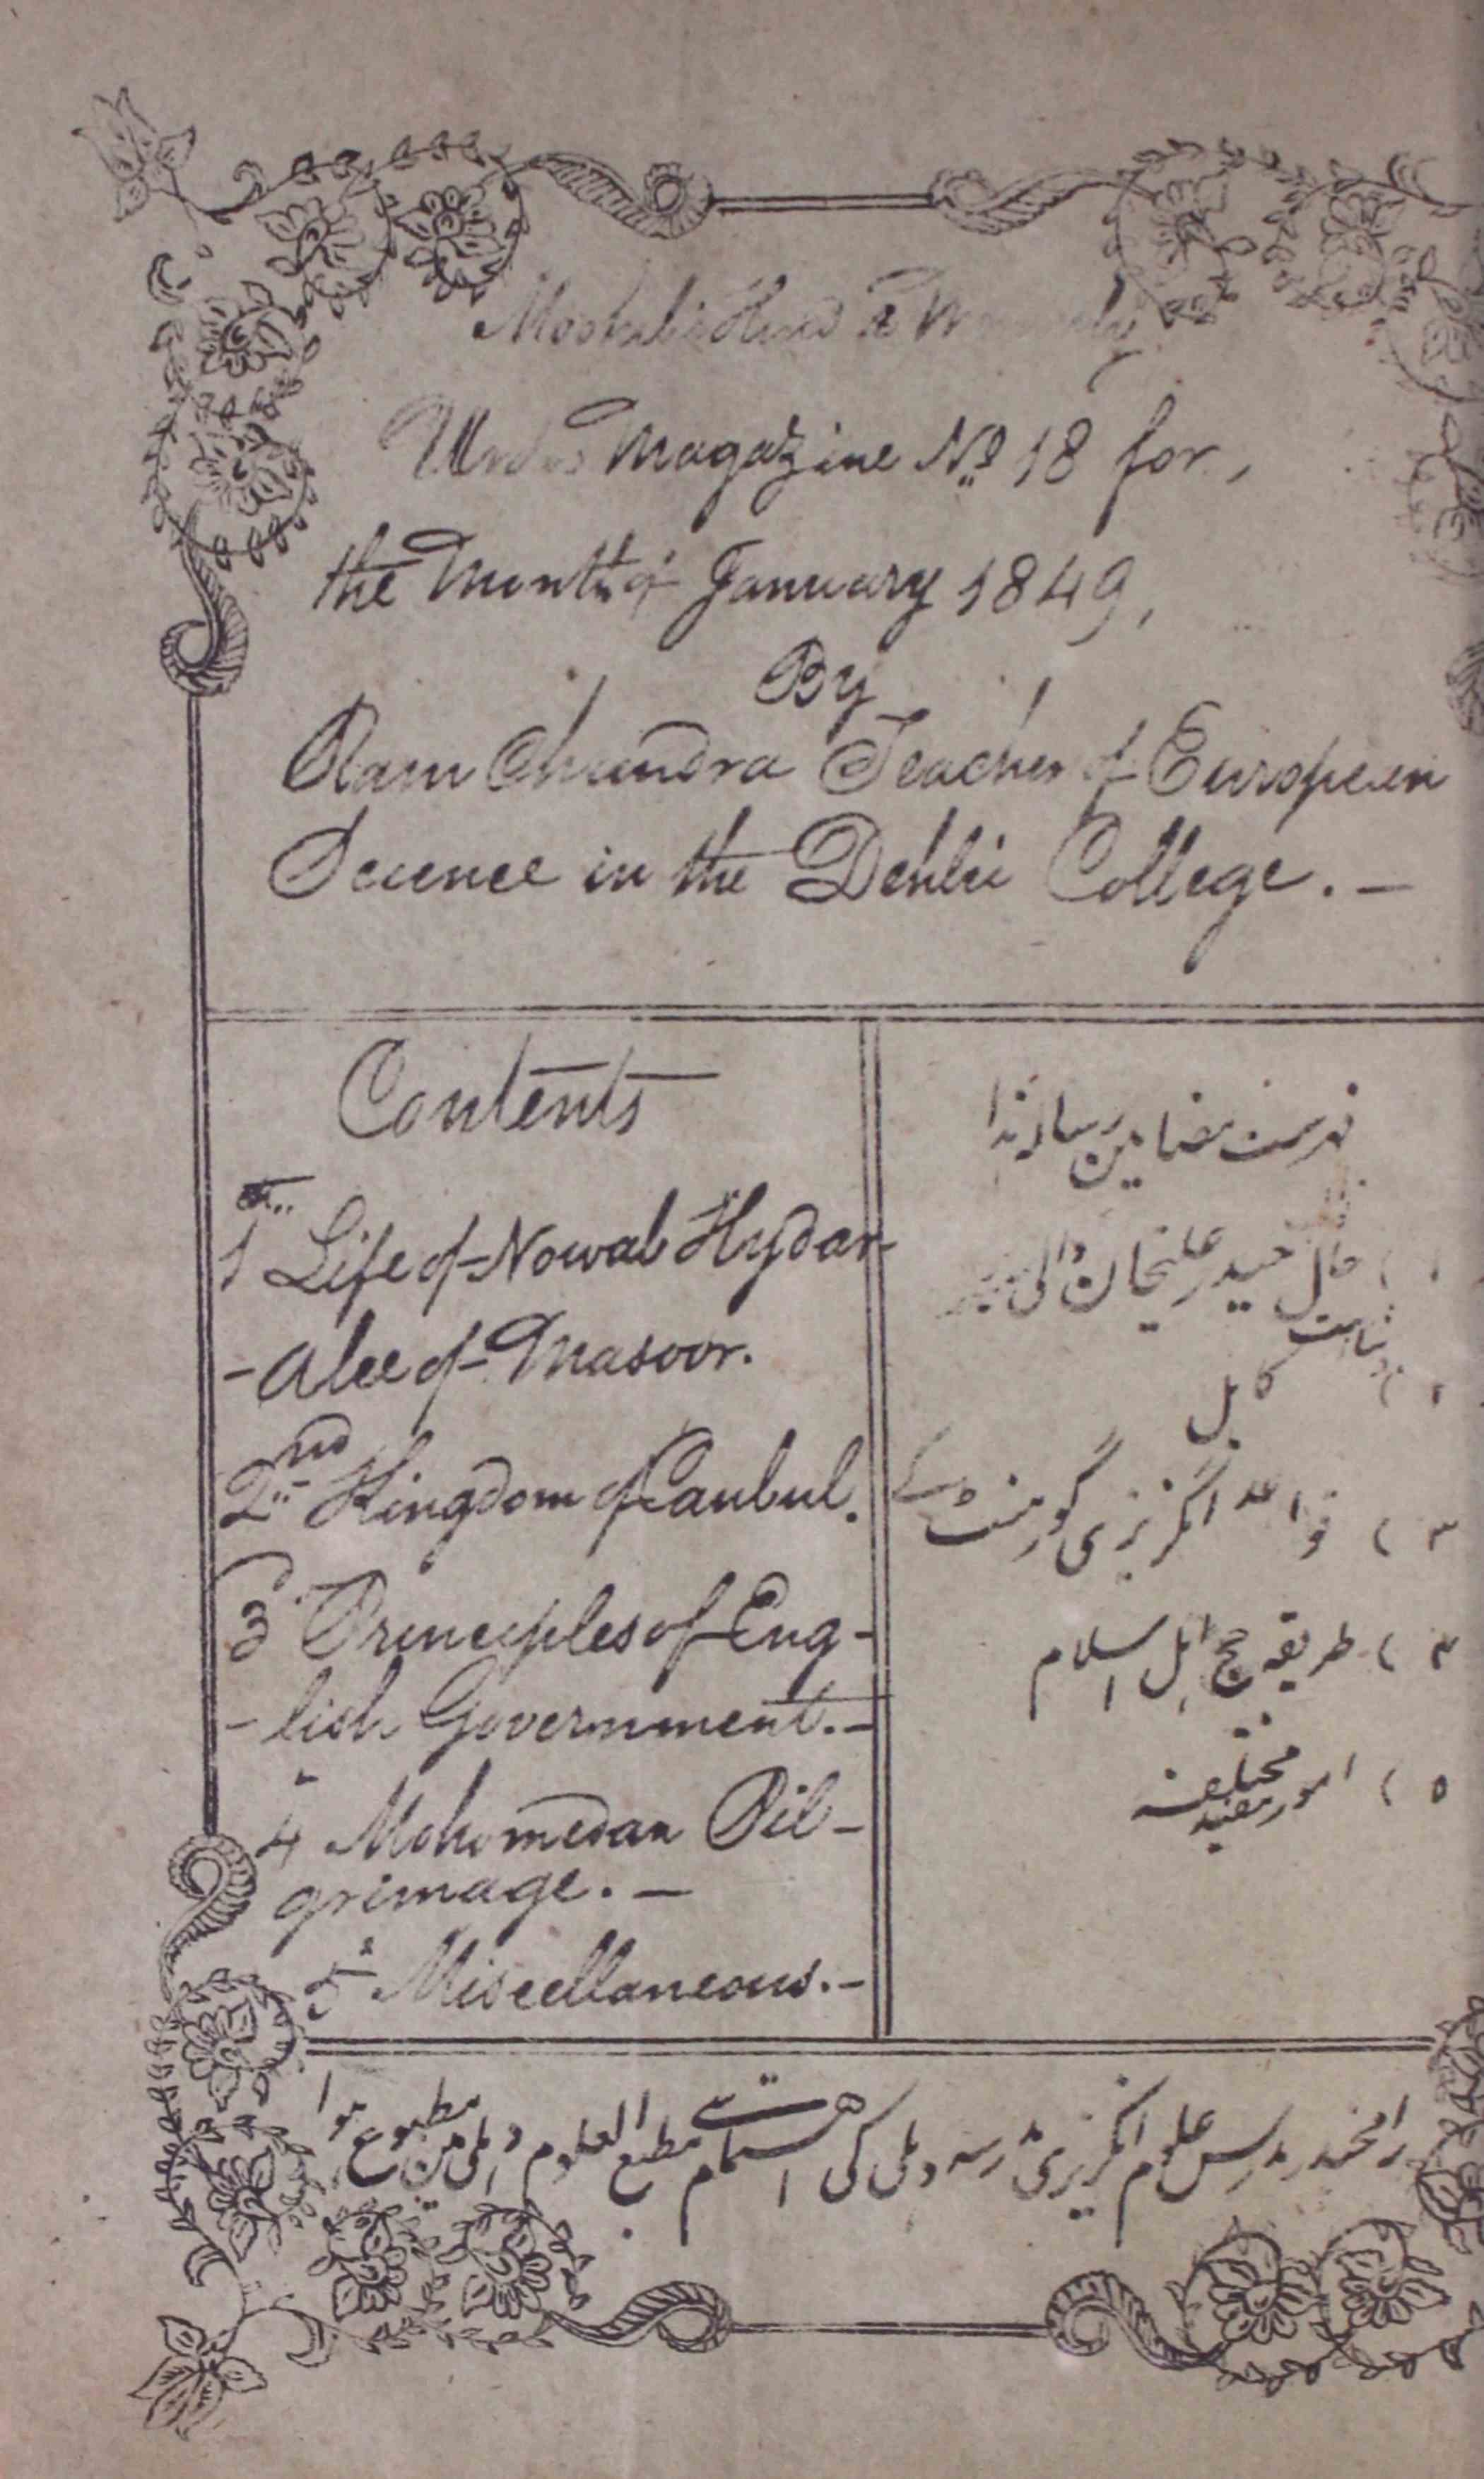 Urdu Magazine No 18 for,
the Month of January 1849,
By
Ram Chundra Teacher of European
Science in the Dehlie College. –
Contents
1 Life of Nowab Hydar-
- Alee of Masoor.
2nd Kingdom of Caubul.
3 Principles of Eng-
- lish Government. –
4 Mohomedan Pil-
grimage. –
5 Miscellaneous. –
فہرست مضامین رسالہ ہذا
حال حیدر علیخان والی
کابل
۳ ) قواعد انگریزی گورمنٹ کے
۴ ) طریقہ حج اہل اسلام
۵ ) امور مختلفہ مفیدہ
رامچندر مدرس علوم انگریزی مدرسہ دہلی کی اہتمام سے مطبع العلوم دہلی میں مطبوع ہوا